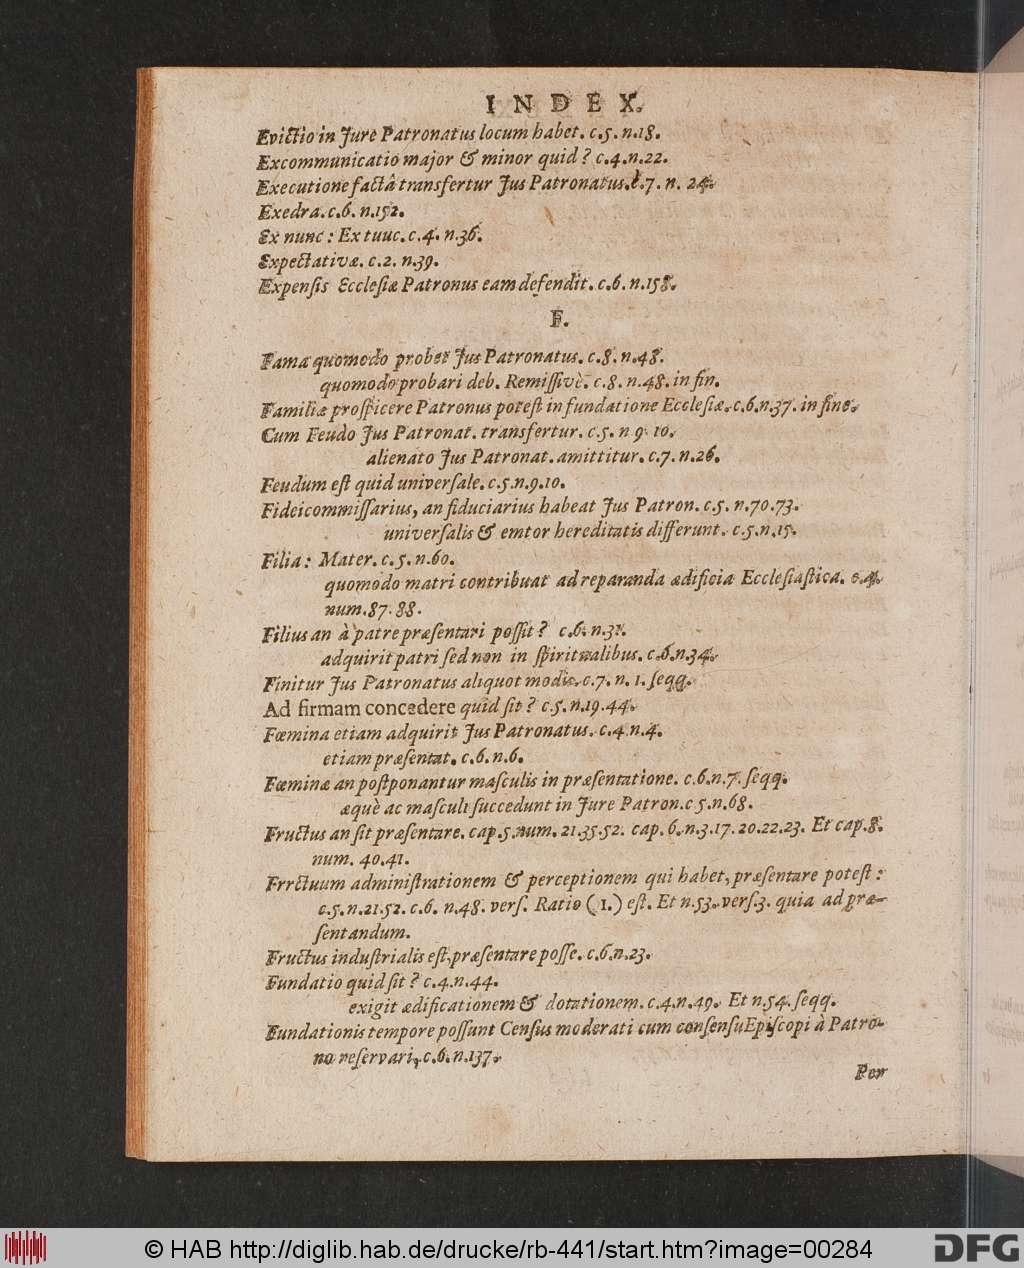 INDEX.
Evictio in Jure Patronatus locum habet. c.5. n.18.
Excommunicatio major & minor quid? c.4.n.22.
Executione factâ transfertur Jus Patronatus.c.7. n. 24.
Exedra.c.6. n.152.
Ex nunc: Ex tuuc. c.4. n.36.
Expectativæ. c.2. n.39.
Expensis Ecclesiæ Patronus eam defendit. c.6. n.158.
F.
Fama quomodo probet Jus Patronatus. c.8. n.48.
quomodo probari deb. Remissivè. c.8. n.48. in fin.
Familiæ prospicere Patronus potest in fundatione Ecclesiæ.c.6.n.37. in fine.
Cum Feudo Jus Patronat. transfertur. c.5. n 9. 10.
alienato Jus Patronat. amittitur. c.7. n.26.
Feudum est quid universale. c.5.n.9.10.
Fideicommissarius, an fiduciarius habeat Jus Patron. c.5. n.70.73.
universalis & emtor hereditatis differunt. c.5.n.15.
Filia: Mater. c.5. n.60.
quomodo matri contribuat ad reparanda ædificia Ecclesiastica. c.4.
num.87.88.
Filius an à patre præsentari possit? c.6. n.31.
adquirit patri sed non in spiritualibus. c.6.n.34.
Finitur Jus Patronatus aliquot modis. c.7. n. 1. seqq.
Ad firmam concedere quid sit? c.5. n.19.44.
Fœmina etiam adquirit Jus Patronatus. c.4.n.4.
etiam præsentat. c.6. n.6.
Fœminæ an postponantur masculis in præsentatione. c.6.n.7. seqq.
æquè ac masculi succedunt in Jure Patron.c 5.n.68.
Fructus an sit præsentare. cap.5.num. 21.35.52. cap. 6.n.3.17.20.22.23. Et cap.8.
num. 40.41.
Frrctuum administrationem & perceptionem qui habet, præsentare potest:
c.5.n.21.52. c.6. n.48. vers. Ratio (1.) est. Et n.53. vers.3. quia ad præ-
sentandum.
Fructus industrialis est, præsentare posse. c.6.n.23.
Fundatio quid sit? c.4.n.44.
exigit ædificationem & dotationem. c.4.n.49. Et n.54. seqq.
Fundationis tempore possunt Census moderati cum consensu Episcopi à Patro-
no reservari, c.6.n.137.
Per
© HAB http://diglib.hab.de/drucke/rb-441/start.htm?image=00284
DFG